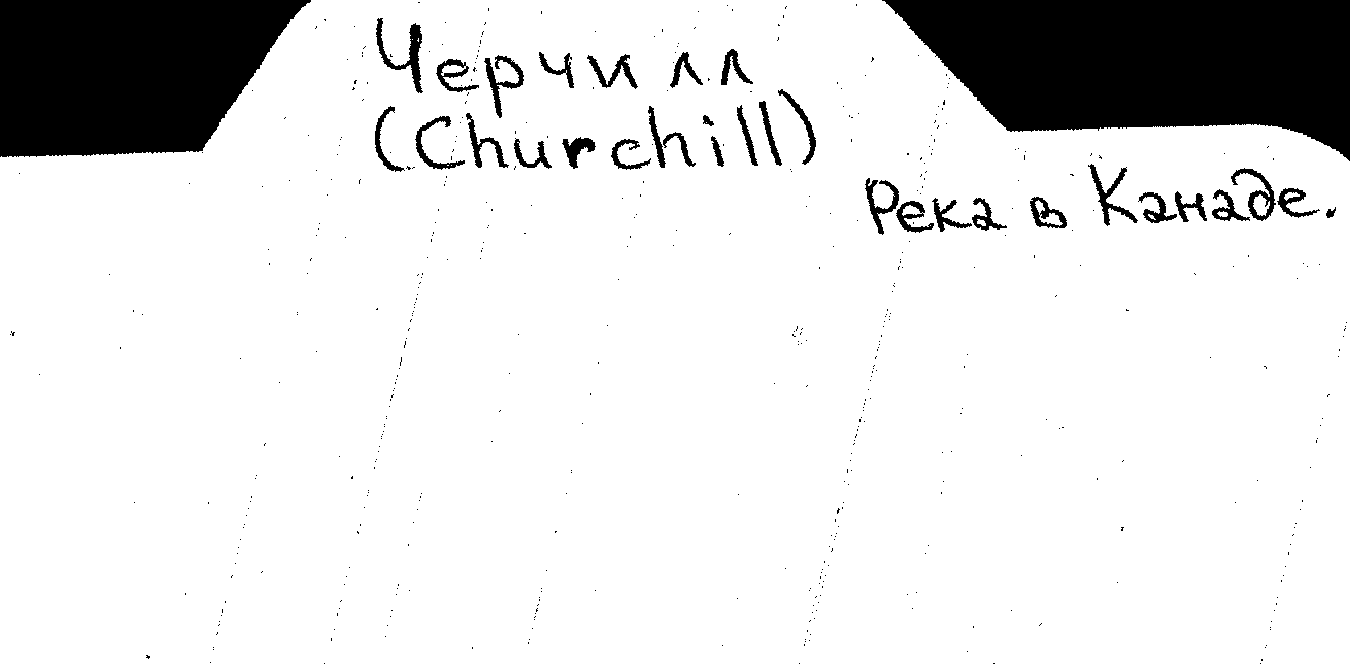 Черчилл
(Churchill)
Река в Канаде.